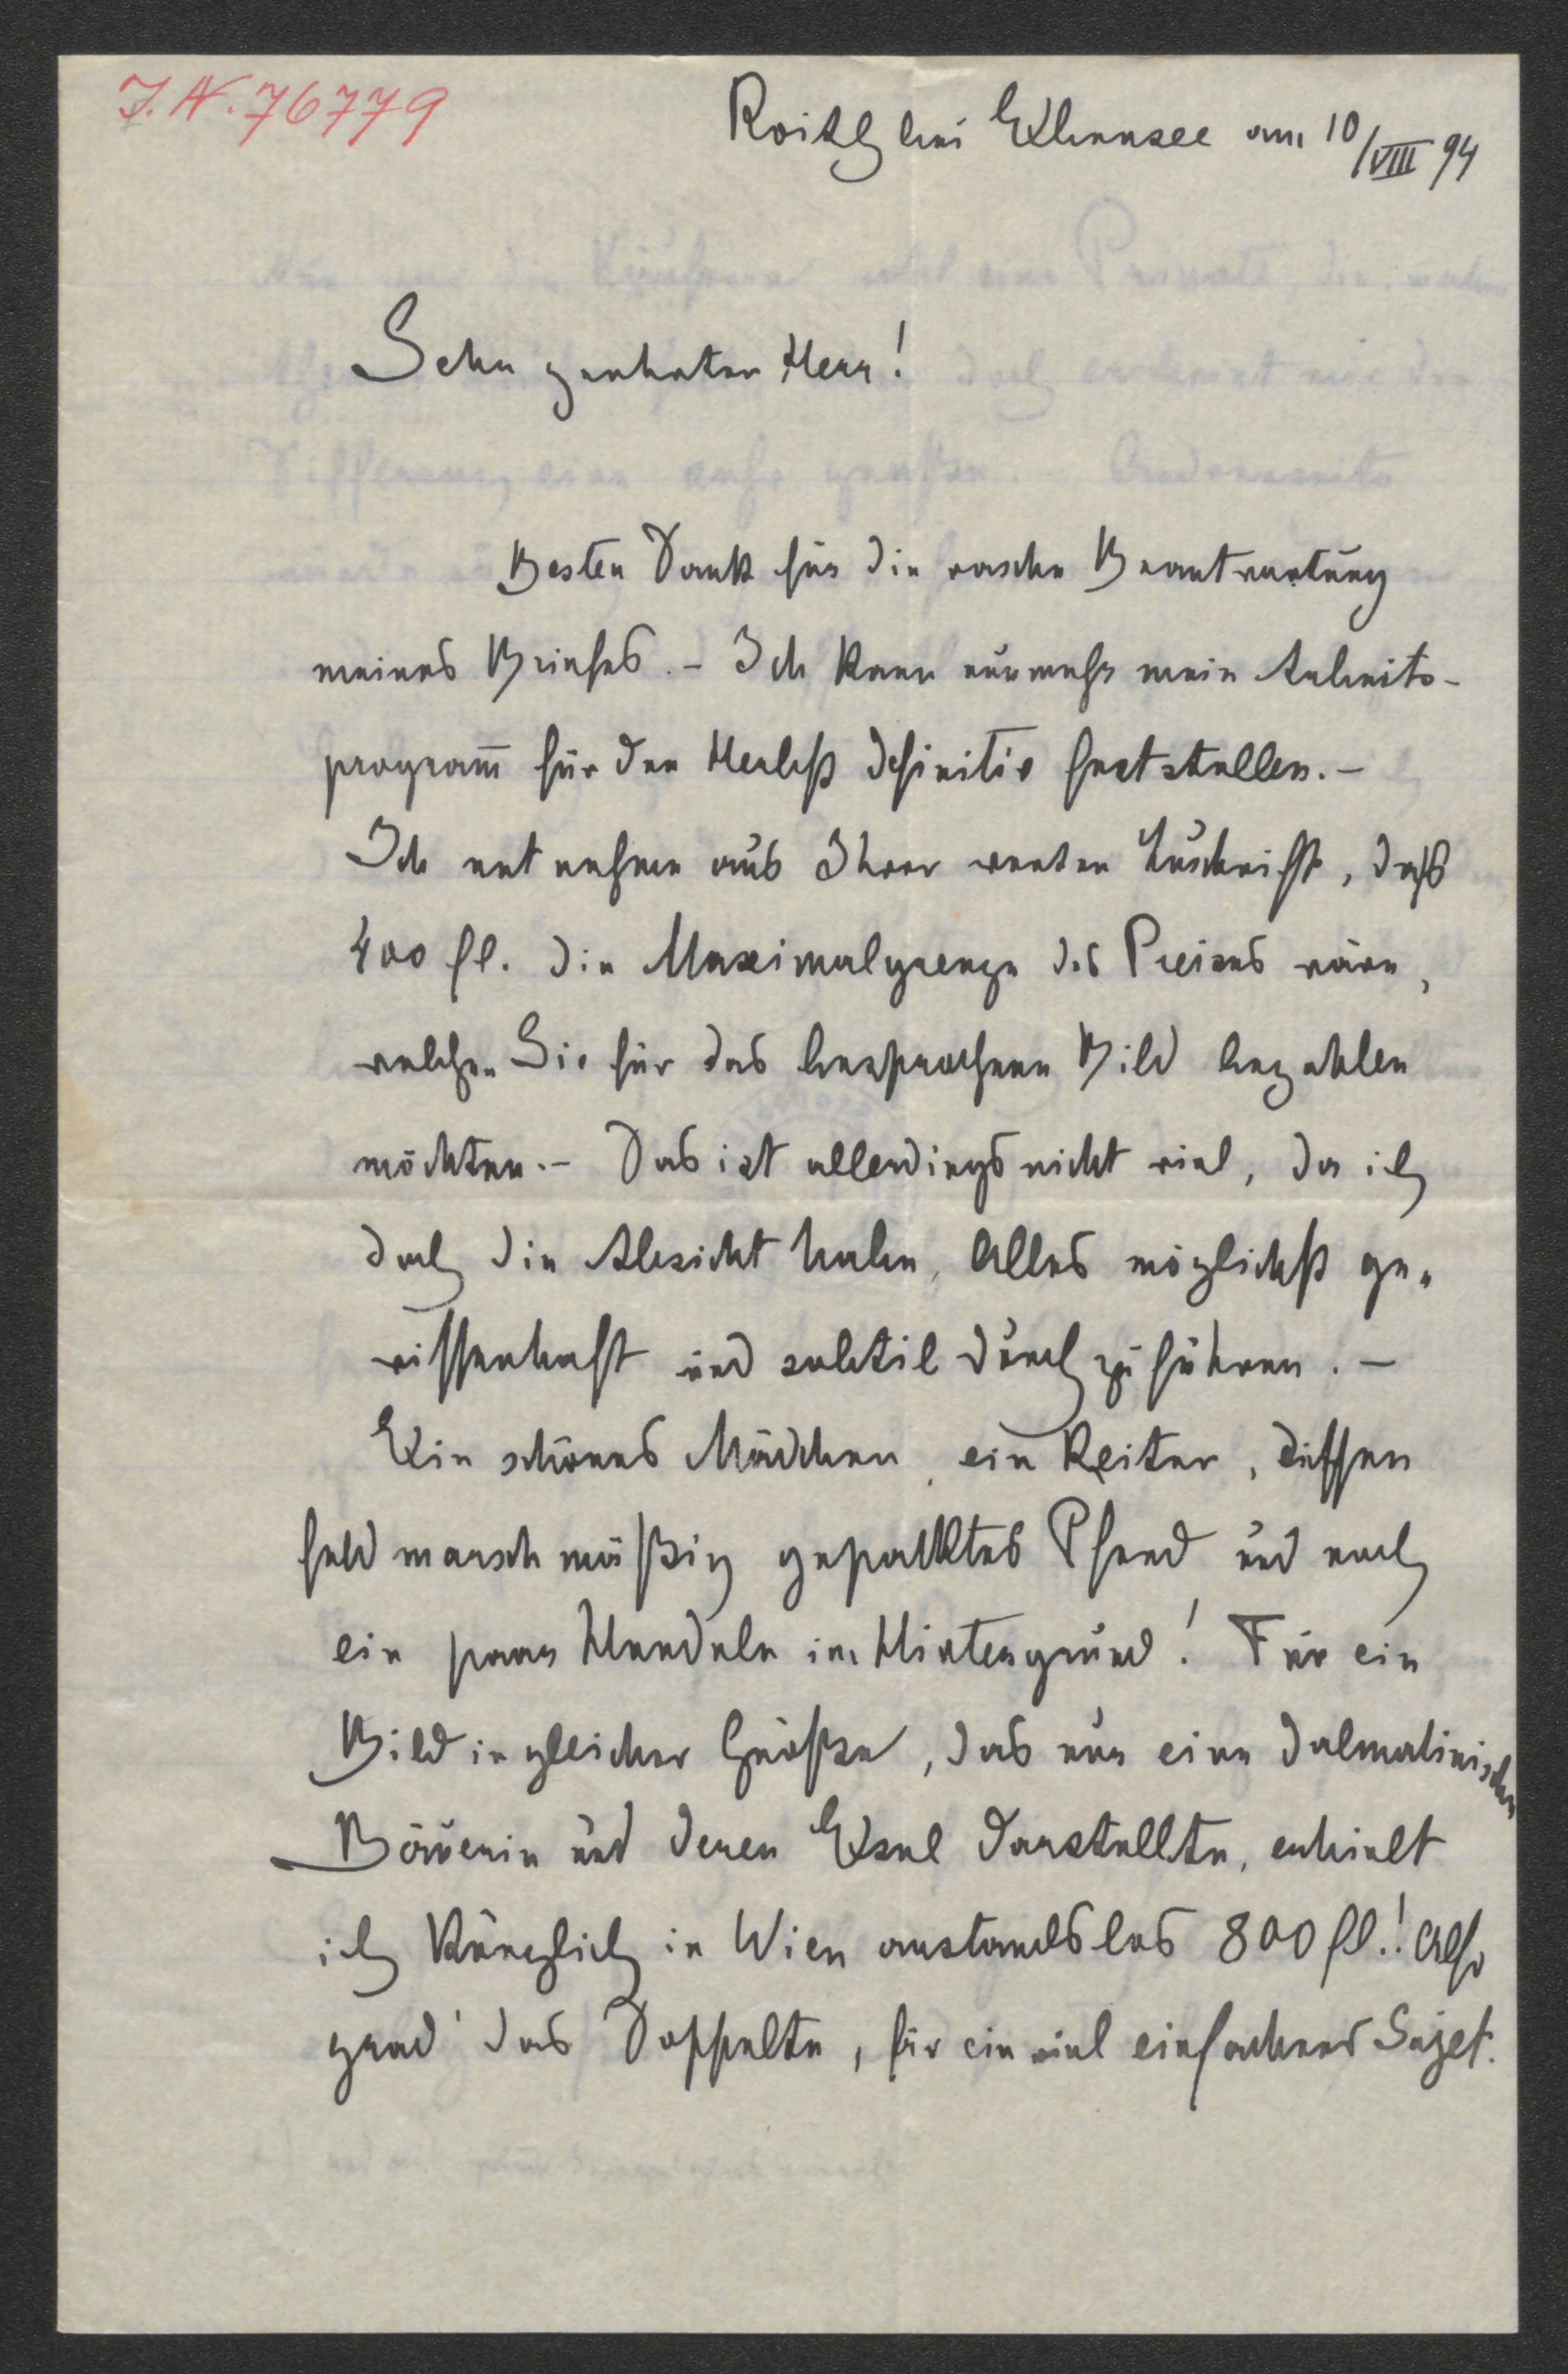 J. N. 76779
Roith bei Ebensee am 10/VIII 94
Sehr geehrter Herr!
Besten Dank für die rasche Beantwortung
meines Briefes. – Ich kann nunmehr mein Arbeits-
programm für den Herbst definitiv feststellen. –
Ich entnehme aus Ihrer werten Zuschrift, daß
400 fl. die Maximalgrenze des Preises wäre,
welchen Sie für das besprochene Bild bezahlen
möchten. – Das ist allerdings nicht viel, da ich
doch die Absicht habe, Alles möglichst ge-
wissenhaft und subtil durchzuführen. –
Ein schönes Mädchen, ein Reiter, dessen
feldmarschmäßig gepacktes Pferd und noch
ein paar Handeln im Hintergrund! Für ein
Bild in gleicher Größe, das nur eine dalmatinische
Bäuerin und deren Esel darstellte, erhielt
ich kürzlich in Wien anstandslos 800 fl.! Also
grad' das Doppelte, für ein viel einfacheres Sujet.